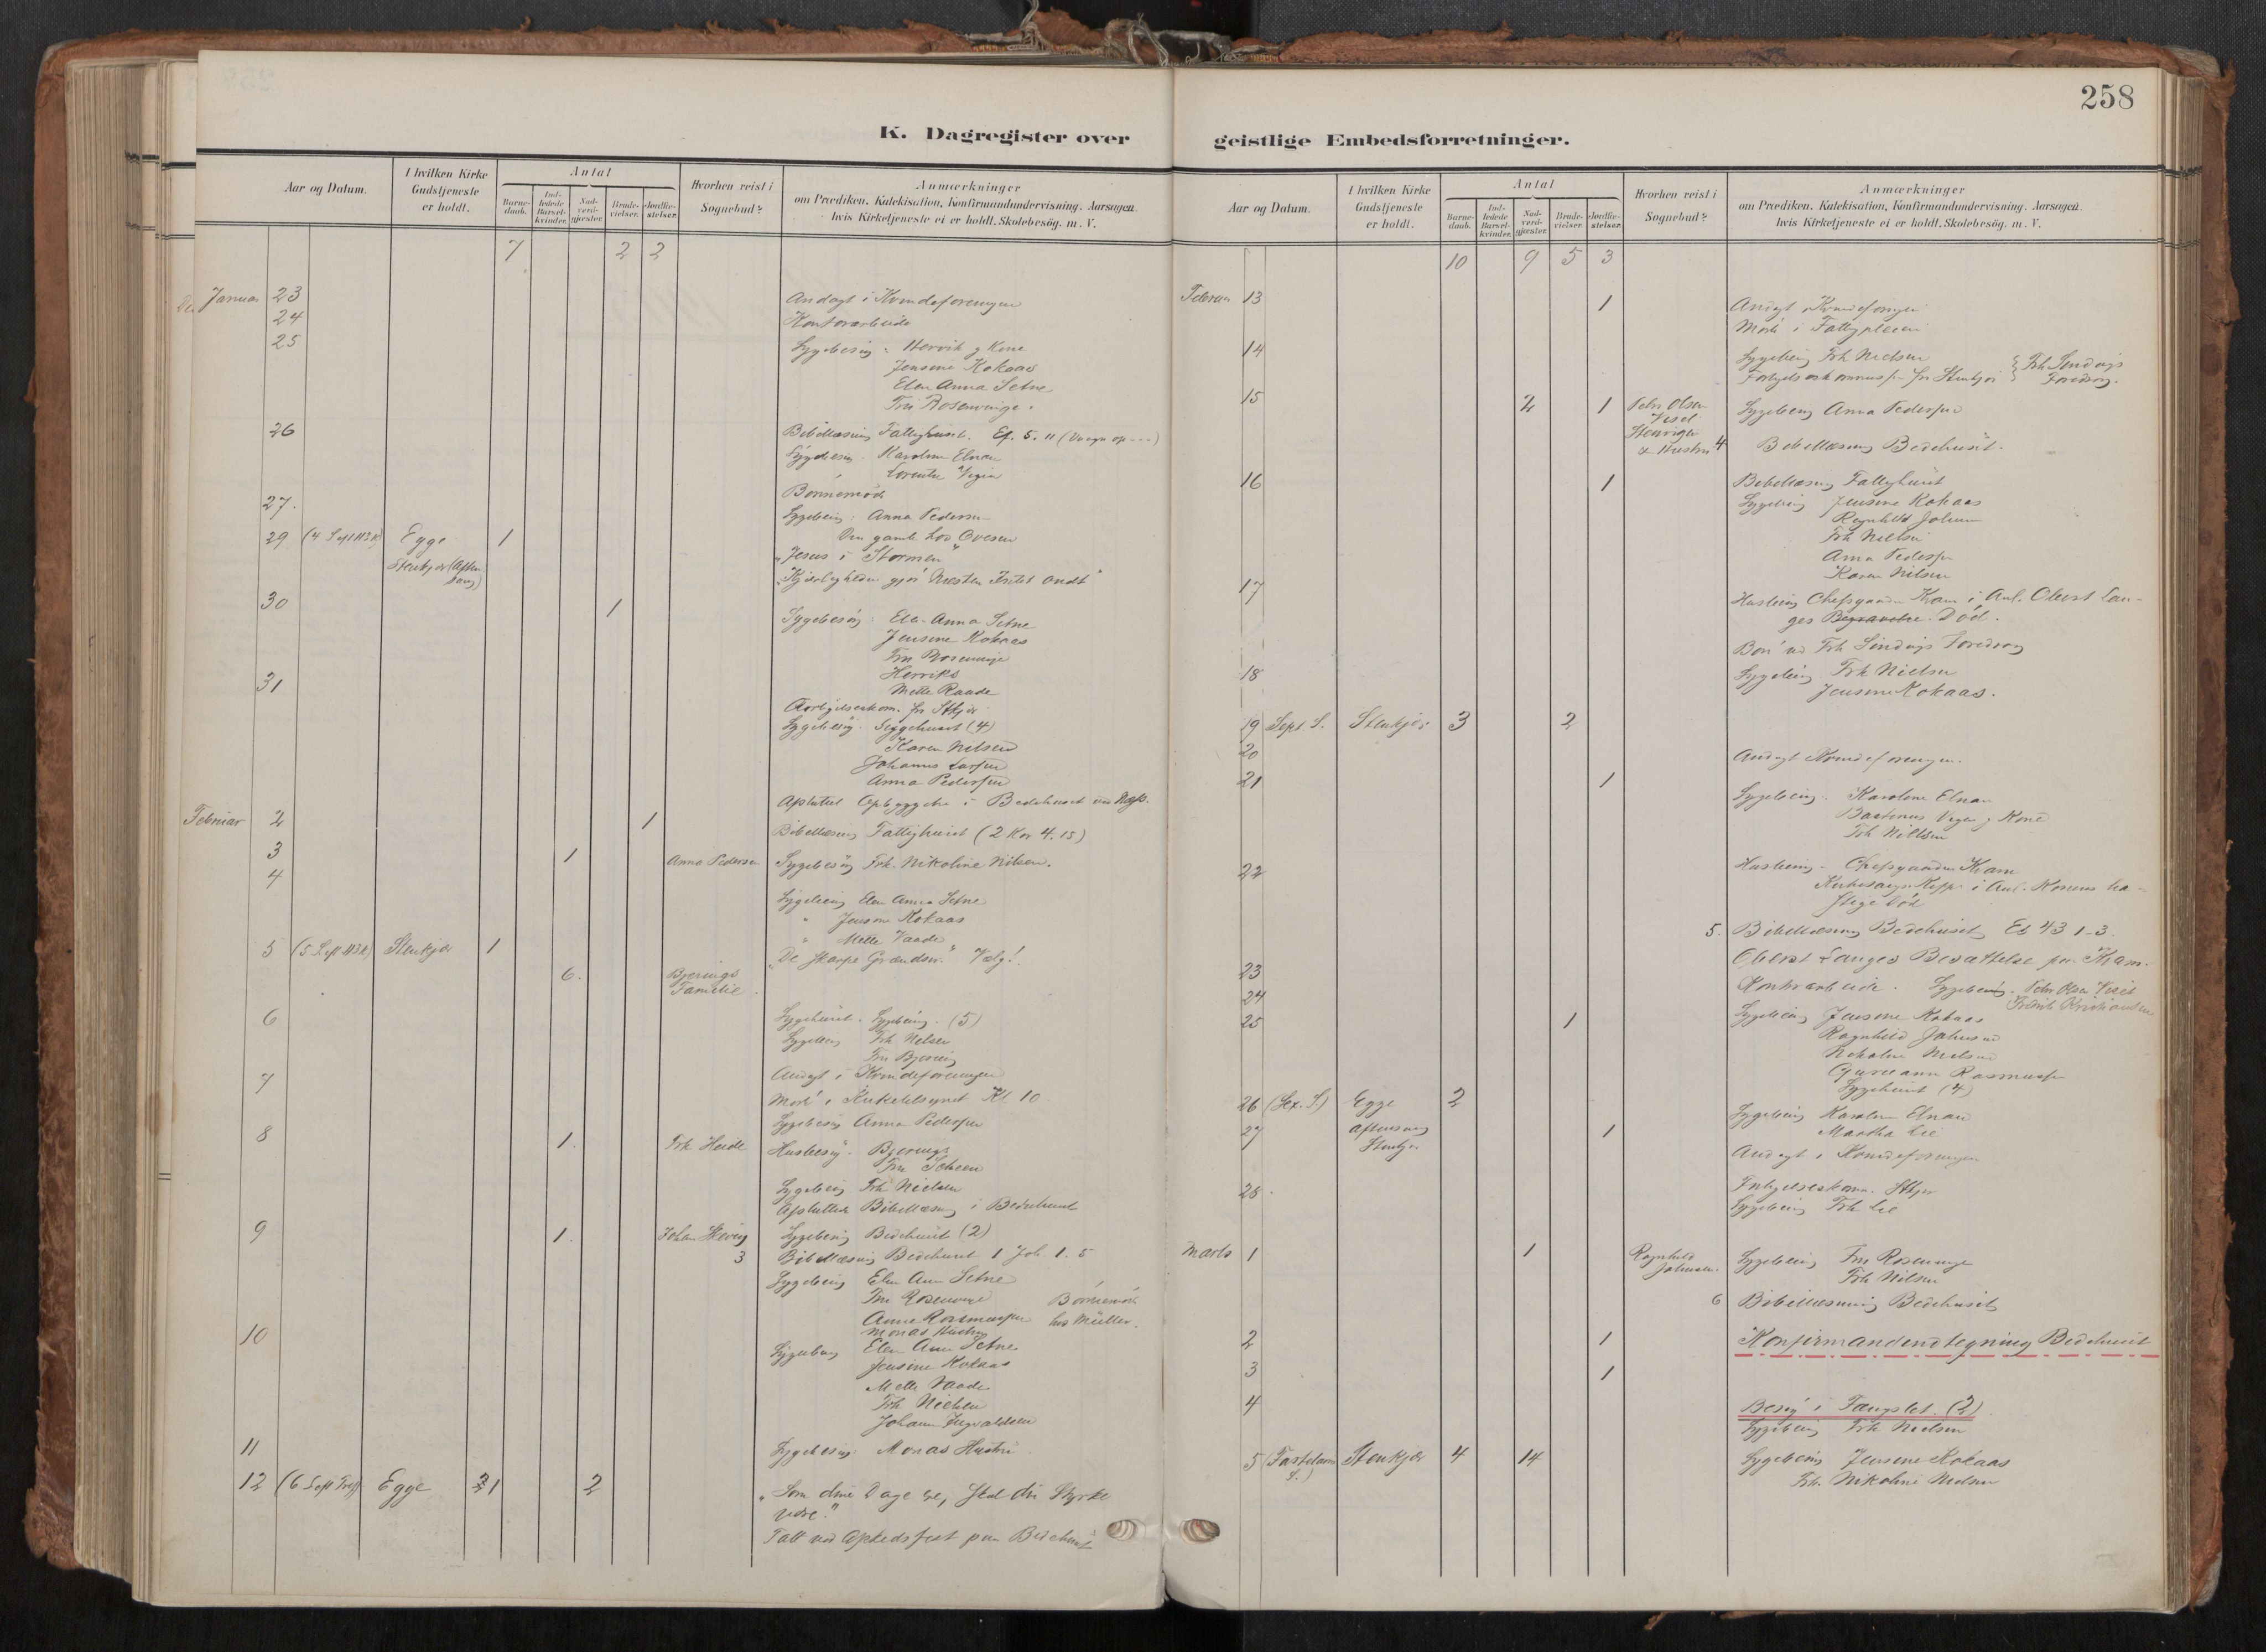 258
K. Dagregister over
geistlige Embedsforretninger.
Aar og Datum.
I hvilken Kirke
Gudstjeneste
er holdt.
Antal
Barne-
daab.
Ind-
ledede
Barsel-
kvinder.
Nad-
verd-
gjæster.
Brude-
vielser.
Jordfæ-
stelser.
Hvorhen reist i
Sognebud?
Anmærkninger
om Prædiken. Katekisation, Konfirmandundervisning. Aarsagen.
hvis Kirketjeneste ei er holdt. Skolebesög. m. V.
7 2 2
Januar 23 Andagt i Kvindeforeningen
24 Kontorarbeide
25 Sygebesøg: Hervik og Kone
Jensine Kokaas
Elen Anna Setne
Fru Rosenvinge.
26 Bibellæsning Fattighuset. Ef. 5. 11
Sygebesøg. Karoline Elnan
Lorentse Vegin
Bønnemøde
27. Sygebesøg: Anna Pedersen
Den gamle hos Ovesen
29 Egge 1 "Jesus i Stormen"
Stenkjær (Aften
sang) "Kjærligheden gjør Næsten Intet ondt"
30 1 Sygebesøg: Elen Anna Setne
Jensine Kokaas
Fru Rosenvinge
Mette Vaade
31
Sygebesøg. Sygehuset (4)
Karen Nilsen
Johannes Larssen
Anna Pederssen
Afsluttet Opbyggelse i Bedehuset
Februar 2 1 Bibellæsning Fattighuset (2 Kor 4. 15)
3 1 Anna Pedersen Sygebesøg Frk. Nikoline Nilsen.
4 Sygebesøg Elen Anna Setne
" Jensine Kokaas
" Mette Vaade
5 Stenkjær 1 "De skarpe Grændser." Vælg!
6. Bjerings
Familie.
6 Sygehuset. Sygebesøg. (5)
Sygebesøg Frk Nielsen
Fru Bjering
Andagt i Kvindeforeningen
7 Møde i Kirketilsynet Kl 10
Sygebesøg Anna Pederssen
8 1. Frk Heide Husbesøg. Bjerings
Fru Scheen
Sygebesøg Frk Nielsen
Afsluttede Bibellæsning i Bedehuset
9 1. Sygebesøg Bedehuset (2)
3 Bibellæsning Bedehuset 1 Joh. 1. 5
Sygebesøg Elen Anna Setne
Fru Rosenvinge Bønnemøde
Anne Rasmussen hos Müller.
Monas Hustru
10 Sygebesøg Elen Anna Setne
Jensine Kokaas
Mette Vaade.
Frk Nielsen
Johan Ingvaldsen
11 Sygebesøg: Monas Hustru.
12 Egge 1 2 "Som dine Dage ere, skal din Styrke
være."
Tale ved Afskedsfest paa Bedehuset
Aar og Datum.
I hvilken Kirke
Gudstjeneste
er holdt.
Antal
Barne-
daab.
Ind-
ledede
Barsel-
kvinder.
Nad-
verd-
gjæster.
Brude-
vielser.
Jordfæ-
stelser.
Hvorhen reist i
Sognebud?
Anmærkninger
om Prædiken. Katekisation, Konfirmandundervisning. Aarsagen.
hvis Kirketjeneste ei er holdt. Skolebesög. m. V.
10 9 5 3
Februar 13 1 Andagt i Kvindeforeningen
Møde i Fattigplejen
14 Sygebesøg Frk Nielsen
Foredrag.
15 2 1 Peder Olsen
Sygebesøg Anna Pederssen
& Hustru 4 Bibellæsning Bedehuset.
16 1 Bibellæsning Fattighuset
Sygebesøg Jensine Kokaas
Ragnhild Johnsen
Frk Nielsen
Anna Pederssen
Karen Nilsen
17 Husbesøg Chefsgaarden Kvam i Anl. Oberst Lan-
ges Begravelse. Død.
Bøn ved Frk Sindings Foredrag
18 Sygebesøg Frk Nielsen
Jensine Kokaas.
19 Sept. S. Stenkjær 3 2
20 Andagt Kvindeforeningen.
21 1 Sygebesøg. Karoline Elnan
Bastinus Vegin og Kone
Frk Nielsen
22 Husbesøg. Chefsgaarden Kvam
stige Død
5. Bibellæsning Bedehuset Es 43 1-3.
23 Oberst Langes Bisættelse paa Kvam.
24 Kontorarbeide. Sygebesøg. Peder Olsen
25 1 Sygebesøg Jensine Kokaas
Ragnhild Johnsen
Nikoline Nielsen
Rasmussen
Sygehuset (4)
26 (Sex. S.) Egge 2 Sygebesøg Karoline Elnan
27 Aftensang
Stenkjær 1 Martha Lie
Andagt i Kvindeforeningen
28. Forligelseskomm. Stkjær
Sygebesøg Frk Lie
Marts 1 1 Ragnhild
Johnsen. Sygebesøg Fru Rosenvinge
Frk Nilsen
6 Bibellæsning Bedehuset
2 1 Konfirmandindtegning Bedehuset
3 1
4 Besøg i Fængslet. (2)
Sygebesøg Frk Nielsen
5 (Fastelavns
S.) Stenkjær 4 14 Sygebesøg Jensine Kokaas
Frk. Nikoline Nielsen